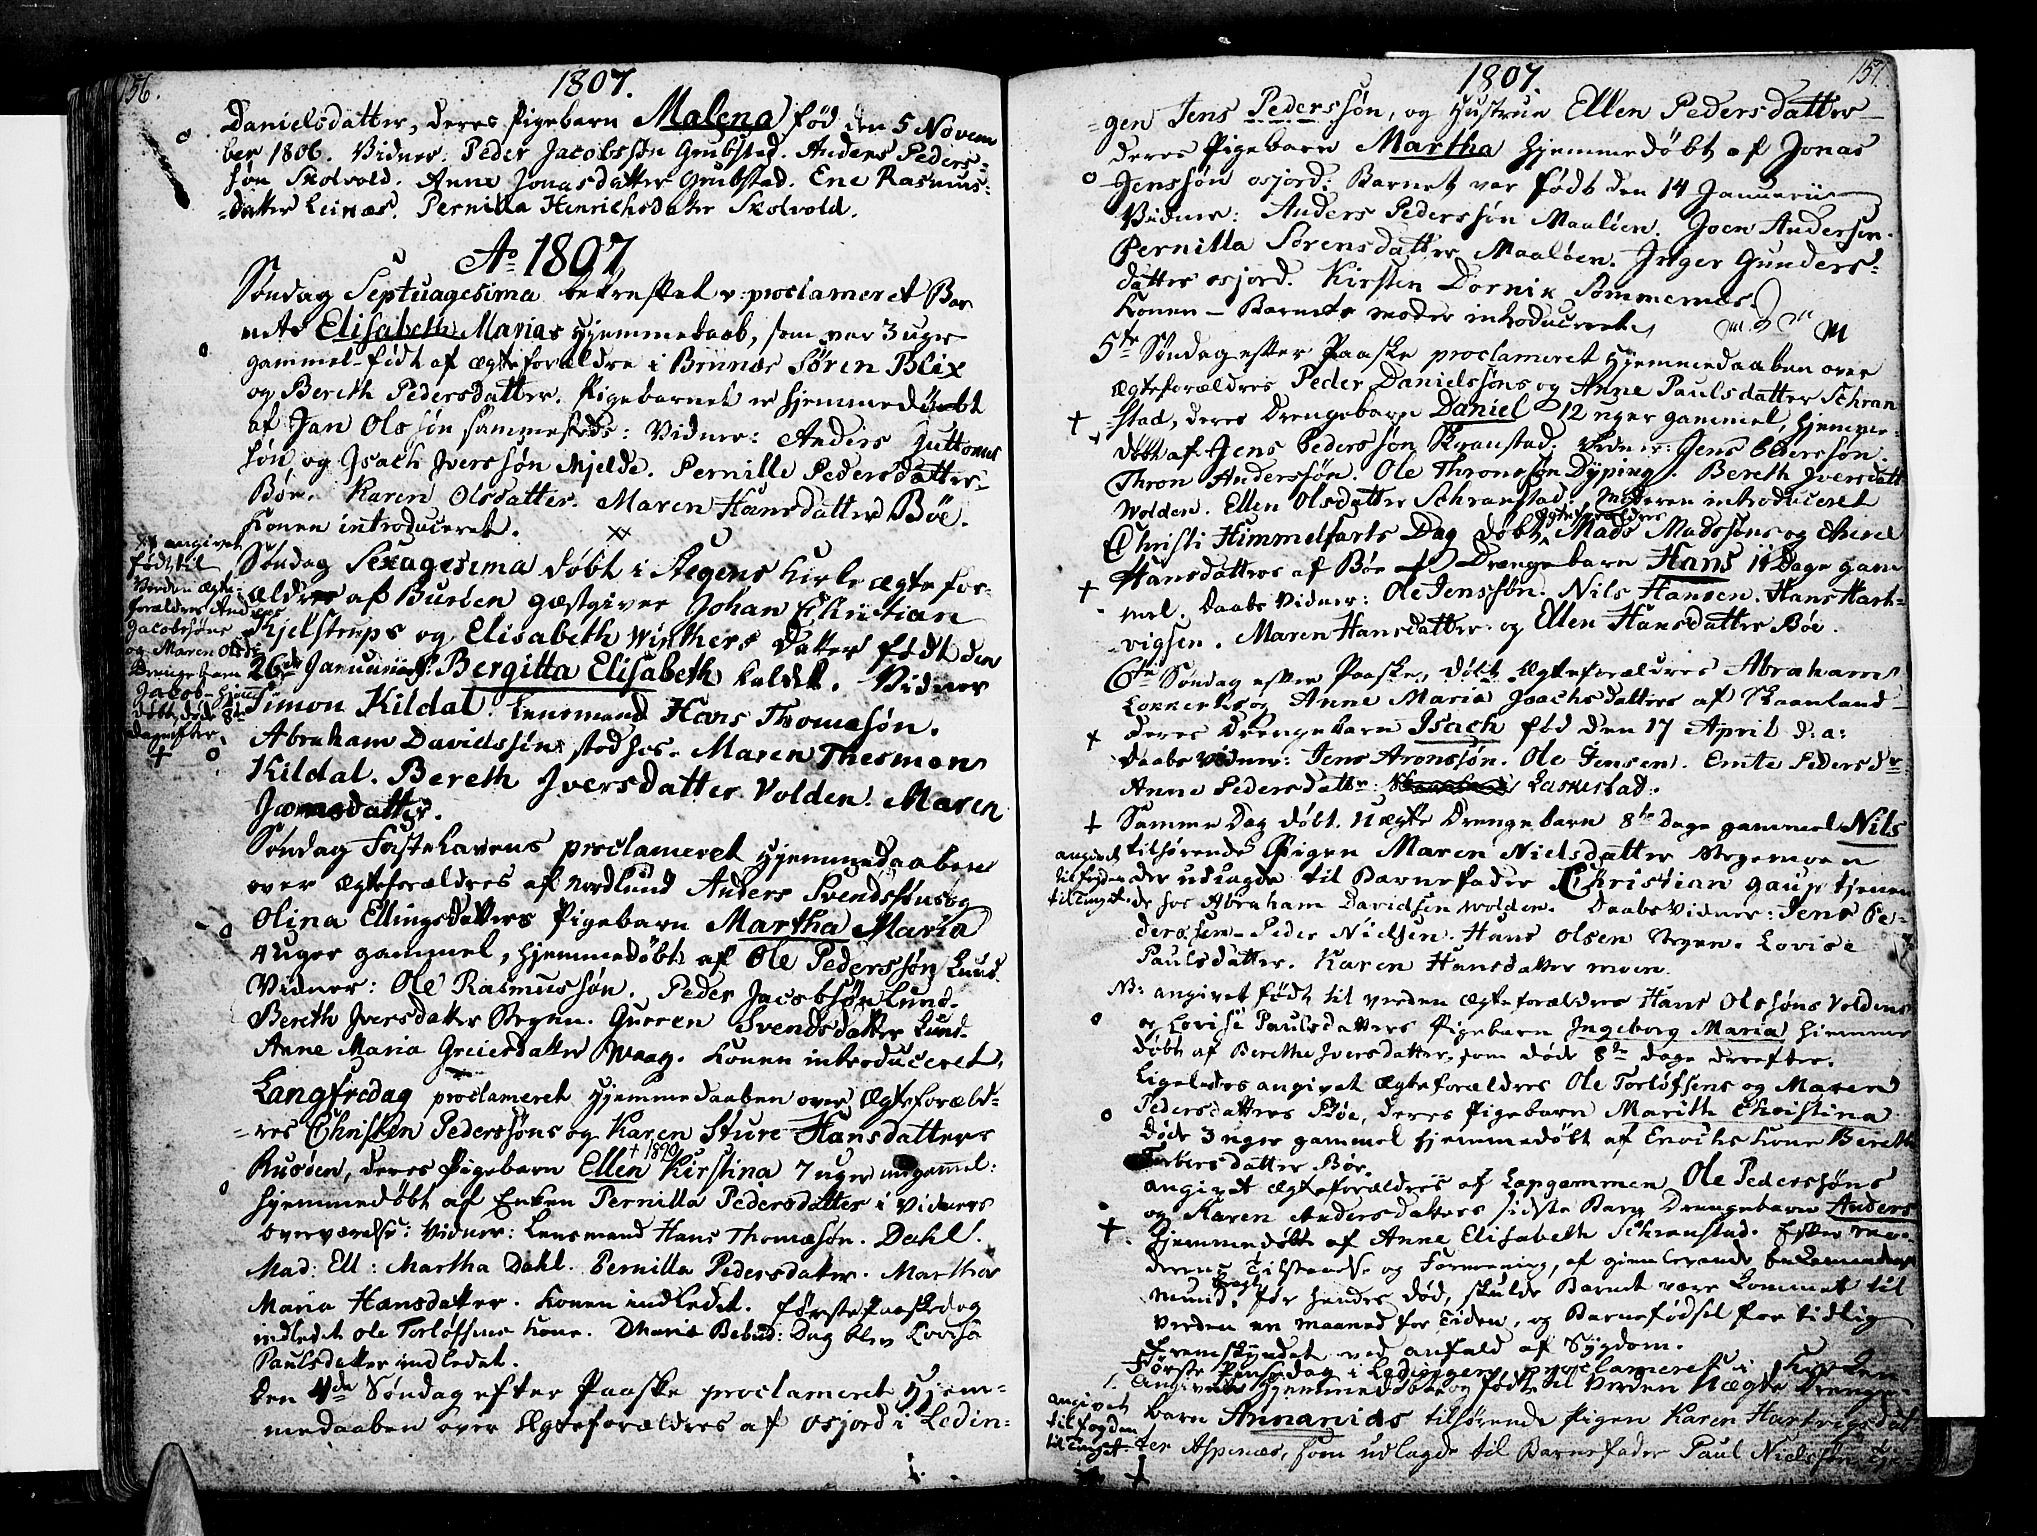 156.
1807.
Danielsdatter, deres Pigebarn Malena fød den 5 Novem
ber 1806. Vidner: Peder Jacobssøn Grubstad. Anders Peders-
søn Skolvold. Anne Jonasdatter Grubstad. Ene Rasmus-
-datter Leinæs. Pernilla Henrichsdatter Skolvold.
Ao 1807
Søndag Septuagesima bekreftet v: proclameret Bar
nets Elisabeth Marias Hjemmedaab, som var 3 uger
gammel født af ægteforældre i Brunæs Søren Blix
og Bereth Pedersdatter. Pigebarnet er hjemmedøbt
af Jan Olssøn sammesteds: Vidner: Anders Guttorms
søn og Isach Iverssøn Mjelde. Pernille Pedersdatter
Bøe. Karen Olsdatter. Maren Hansdatter Bøe.
Konen introduceret.
angivet
født til
Verden ægte-
forældres Anders
Jacobsøns
og Maren Olsd:
Drengebarn
Jacob hjemme
døbt, døde 8te
dag efter.
Søndag Sexagesima døbt i Stegens Kirke ægtefor-
ældres af Burøen gæstgiver Johan Christian
Thjelstrups og Elisabeth Winthers Datter født den
26de Januarii: Bergitta Elisabeth kaldet. Vidner
Simon Kildal. Lensmand Hans Thomasøn.
Abraham Davidssøn sted hos. Maren Thesmon
Kildal. Bereth Iversdatter Volden. Maren
Joensdatter.
Søndag Fastelavens proclameret Hjemmedaaben
over ægteforældres af Nordlund Anders Svendssøns og
Olina Ellingsdatters Pigebarn Martha Maria
uger gammel, hjemmedøbt af Ole Pederssøn Lund.
Vidner: Ole Rasmussøn. Peder Jacobsøn Lund.
Bereth Iversdatter Stegen. Guren Svendsdatter Lund.
Anne Maria Greiersdatter Waag. Konen introduceret.
Langfredag proclameret Hjemmedaaben over Ægteforæld-
-res Christen Pederssøns og Karen Sture Hansdatters
+ 1890
Rusøen, deres Pigebarn Ellen Kirstina 7 uger gammel:
hjemmedøbt af Enken Pernilla Pedersdatter i Vidners
overværelse: Vidner: Lensmand Hans Thomasøn. Dahl.
Mad: Ell: Martha Dahl. Pernilla Pedersdatter. Martha
Maria Hansdatter. Konen indledet. Første Paaskedag
indledet Ole Torløfsens Kone. Mariæ Bebud: Dag blev Lovisa
Paulsdatter indledet.
Den 4de Søndag efter Paaske proclameret Hjem-
medaaben over Ægteforældres af Osjord i Ledin-
157.
1807.
-gen Jens Pederssøn, og Hustrue Ellen Pedersdatter
deres Pigebarn Martha hjemmedøbt af Jonas
Jenssøn Osjord: Barnet var født den 14 Januarii
Vidner: Anders Pederssøn Maaløen. Joen Andersen.
Pernilla Sørensdatter Maaløen. Inger Gunders-
datter Osjord. Kirsten Dornix Sommernæs.
Konen - Barnets moder introduceret.
5te Søndag efter Paaske proclameret Hjemmedaaben over
Ægteforældres Peder Danielssøns og Anne Paulsdatter Schran
stad, deres Drengebarn Daniel 12 uger gammel, hjemme-
døbt af Jens Pederssøn Skranstad. Vidner: Jens Pederssøn.
Thron Anderssøn. Ole Thronssøn Dyping. Bereth Iversdatt
Wolden. Ellen Olsdatter Schranstad. Moderen introduceret
ægteforældres
Christi Himmelfarts Dag døbt Mads Madssøns og
Hansdatters af Bøe Drengebarn Hans 11 Dage gam
mel. Daabs Vidner: Ole Jenssøn. Nils Hansen. Hans Hart-
vigsen. Maren Hansdatter og Ellen Hansdatter Bøe.
6te Søndag efter Paaske, døbt Ægteforældres Abrahams
og Anne Maria Joachsdatters af Skaanland
Deres Drengebarn Isach fød den 17 April d: a:
Daabs Vidner: Jens Aronssøn. Ole Jensen. Pedersdr
Anne Pedersdatter Laskestad.
Samme Dag døbt Uægte Drengebarn 8te dage gammel Nils
tilhørende Pigen Maren Nielsdatter Stegemoen
angivet
til fogden
til Tinget.
der udlagde til Barnefader Christian Gaup tjenen
de hos Abraham Davidsen Wolden. Daabs Vidner: Jens Pe-
dersen. Peder Nielsen. Hans Olsen Stegen. Lovise
Paulsdatter. Karen Hansdatter moen.
NB: angivet født til Verden Ægteforældres Hans Olssøns Voldens
og Lovise Paulsdatters Pigebarn Ingeborg Maria hjemme
døbt af Berethe Iversdatter, som døde 8te dage derefter.
Ligeledes angivet Ægteforældres Ole Torløfsens og Maren
Pedersdatters Bøe, deres Pigebarn Marith Christina
døde 3 uger gammel hjemmedøbt af Enochs Kone Bereth
datter Bøe.
angivet Ægteforældres af Lapgammen Ole Pederssøns
og Karen Andersdatters sidste Barn Drengebarn Anders
hjemmedøbt af Anne Elisabeth Schranstad. Efter mo-
derens Tilstaaelse og Formening, af
mund, før hendes død, skulde Barnet være kommet til
Verden en maaned før Tiden, og Barnefødsel for tidlig
fremskyndet ved anfald af Sygdom.
Første Pinsedag i Ledingen proclameret i Kirken
1. Angivet Hjemmedøbte og fødte til Verden Uægte Drenge-
angivet
til fogden
til Tinget
barn Annanias tilhørende Pigen Karen Hartvigsdat
ter Aspenæs, som udlagde til Barnefader Paul Nielssøn tje-